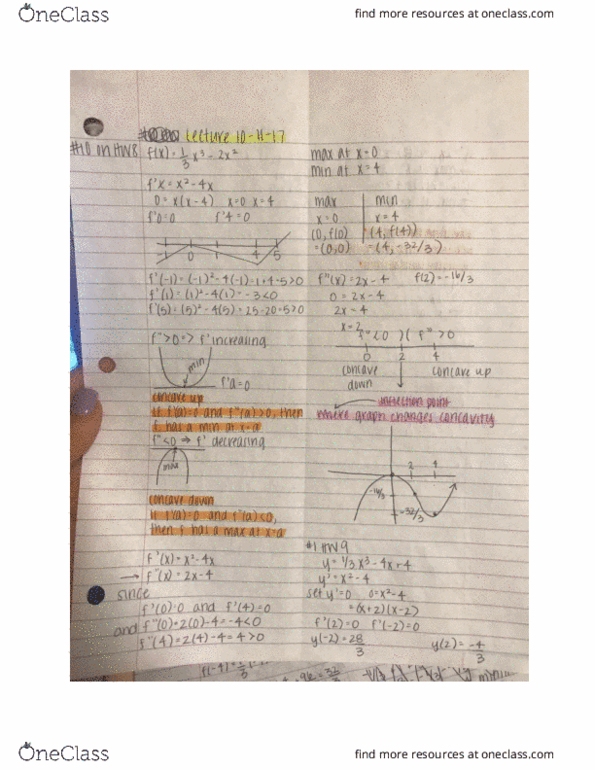 OneClass
find more resources at oneclass.com
Lecture 10-11-17
#10 on HW8
f(x) = 1/3 x³ - 2x²
f'x = x² - 4x
0 = x(x-4) x=0 x=4
f'0=0 f'4=0
-1 0 1 4 5
f'(-1) = (-1)² - 4(-1) = 1+4=5>0
f'(1) = (1)² - 4(1) = -3<0
f'(5) = (5)² - 4(5) = 25-20=5>0
f">0 => f' increasing
min
f'a=0
concave up
if f'(a)=0 and f"(a)>0, then
f has a min at x=a
f"<0 → f' decreasing
max
concave down
If f'(a)=0 and f"(a)<0,
then f has a max at x=a
f'(x) = x² - 4x
→ f"(x) = 2x - 4
since
f'(0)=0 and f'(4)=0
and f"(0) = 2(0)-4 = -4<0
f"(4) = 2(4)-4 = 4>0
max at x=0
min at x=4
max min
x=0 x=4
(0, f(0) (4, f(4))
=(0,0) =(4, -32/3)
f"(x) = 2x-4 f(2) = -16/3
0 = 2x-4
2x = 4
x=2
f"<0 )( f">0
0 2 4
concave down concave up
inflection point
where graph changes concavity
2 4
-16/3
-32/3
#1 HW9
y = 1/3 x³ - 4x + 4
y' = x² - 4
set y'=0 0=x²-4
=(x+2)(x-2)
f'(2)=0 f'(-2)=0
y(-2) = 28/3 y(2) = -4/3
OneClass
find more resources at oneclass.com